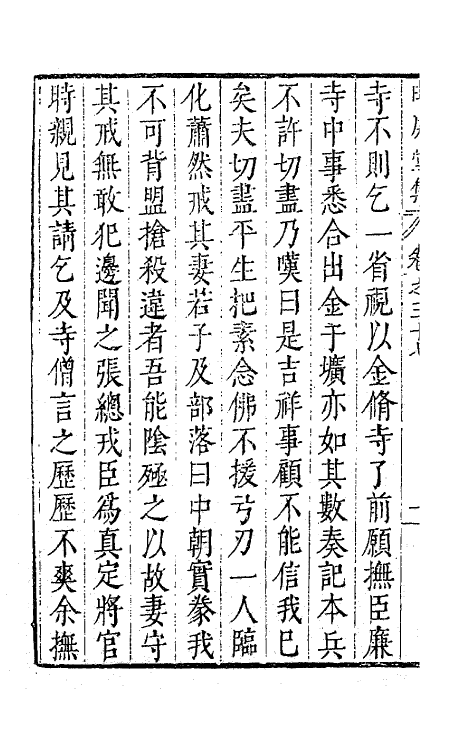 寺不則乞一省視以金脩寺了前願撫臣廉
寺中事悉合出金于壙亦如其數奏記本兵
不許切盡乃嘆曰是吉祥事顧不能信我已
矣夫切盡平生把素念佛不援弓刃一人臨
化蕭然戒其妻若子及部落曰中朝實豢我
不可背盟搶殺違者吾能陰殛之以故妻守
其戒無敢犯邊聞之張總戎臣爲真定將官
時親見其請乞及寺僧言之歷歷不爽余撫